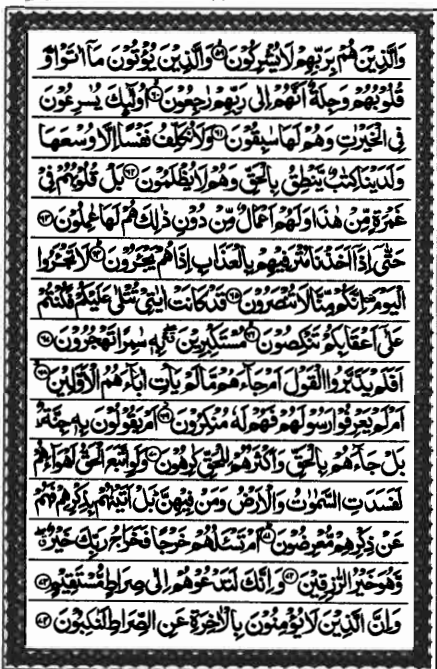 وَالَّذِيْنَ هُمْ بِرَبِّهِمْ لَا يُشْرِكُوْنَ ﴿۵۹﴾ وَالَّذِيْنَ يُؤْتُوْنَ مَاۤ اٰتَوْا وَّ
قُلُوْبُهُمْ وَجِلَةٌ اَنَّهُمْ اِلٰى رَبِّهِمْ رٰجِعُوْنَ ﴿۶۰﴾ اُولٰٓئِكَ يُسٰرِعُوْنَ
فِى الْخَيْرٰتِ وَهُمْ لَهَا سٰبِقُوْنَ ﴿۶۱﴾ وَلَا نُكَلِّفُ نَفْسًا اِلَّا وُسْعَهَا
وَلَدَيْنَا كِتٰبٌ يَّنْطِقُ بِالْحَقِّ وَهُمْ لَا يُظْلَمُوْنَ ﴿۶۲﴾ بَلْ قُلُوْبُهُمْ فِىْ
غَمْرَةٍ مِّنْ هٰذَا وَلَهُمْ اَعْمَالٌ مِّنْ دُوْنِ ذٰلِكَ هُمْ لَهَا عٰمِلُوْنَ ﴿۶۳﴾
حَتّٰۤى اِذَاۤ اَخَذْنَا مُتْرَفِيْهِمْ بِالْعَذَابِ اِذَا هُمْ يَجْئَرُوْنَ ﴿۶۴﴾ لَا تَجْئَرُوا
الْيَوْمَ اِنَّكُمْ مِّنَّا لَا تُنْصَرُوْنَ ﴿۶۵﴾ قَدْ كَانَتْ اٰيٰتِىْ تُتْلٰى عَلَيْكُمْ فَكُنْتُمْ
عَلٰٓى اَعْقَابِكُمْ تَنْكِصُوْنَ ﴿۶۶﴾ مُسْتَكْبِرِيْنَ بِهٖ سٰمِرًا تَهْجُرُوْنَ ﴿۶۷﴾
اَفَلَمْ يَدَّبَّرُوا الْقَوْلَ اَمْ جَآءَهُمْ مَّا لَمْ يَاْتِ اٰبَآءَهُمُ الْاَوَّلِيْنَ ﴿۶۸﴾
اَمْ لَمْ يَعْرِفُوْا رَسُوْلَهُمْ فَهُمْ لَهٗ مُنْكِرُوْنَ ﴿۶۹﴾ اَمْ يَقُوْلُوْنَ بِهٖ جِنَّةٌ
بَلْ جَآءَهُمْ بِالْحَقِّ وَاَكْثَرُهُمْ لِلْحَقِّ كٰرِهُوْنَ ﴿۷۰﴾ وَلَوِ اتَّبَعَ الْحَقُّ اَهْوَآءَهُمْ
لَفَسَدَتِ السَّمٰوٰتُ وَالْاَرْضُ وَمَنْ فِيْهِنَّ بَلْ اَتَيْنٰهُمْ بِذِكْرِهِمْ فَهُمْ
عَنْ ذِكْرِهِمْ مُّعْرِضُوْنَ ﴿۷۱﴾ اَمْ تَسْئَلُهُمْ خَرْجًا فَخَرَاجُ رَبِّكَ خَيْرٌ
وَّهُوَ خَيْرُ الرّٰزِقِيْنَ ﴿۷۲﴾ وَاِنَّكَ لَتَدْعُوْهُمْ اِلٰى صِرَاطٍ مُّسْتَقِيْمٍ ﴿۷۳﴾
وَاِنَّ الَّذِيْنَ لَا يُؤْمِنُوْنَ بِالْاٰخِرَةِ عَنِ الصِّرَاطِ لَنٰكِبُوْنَ ﴿۷۴﴾